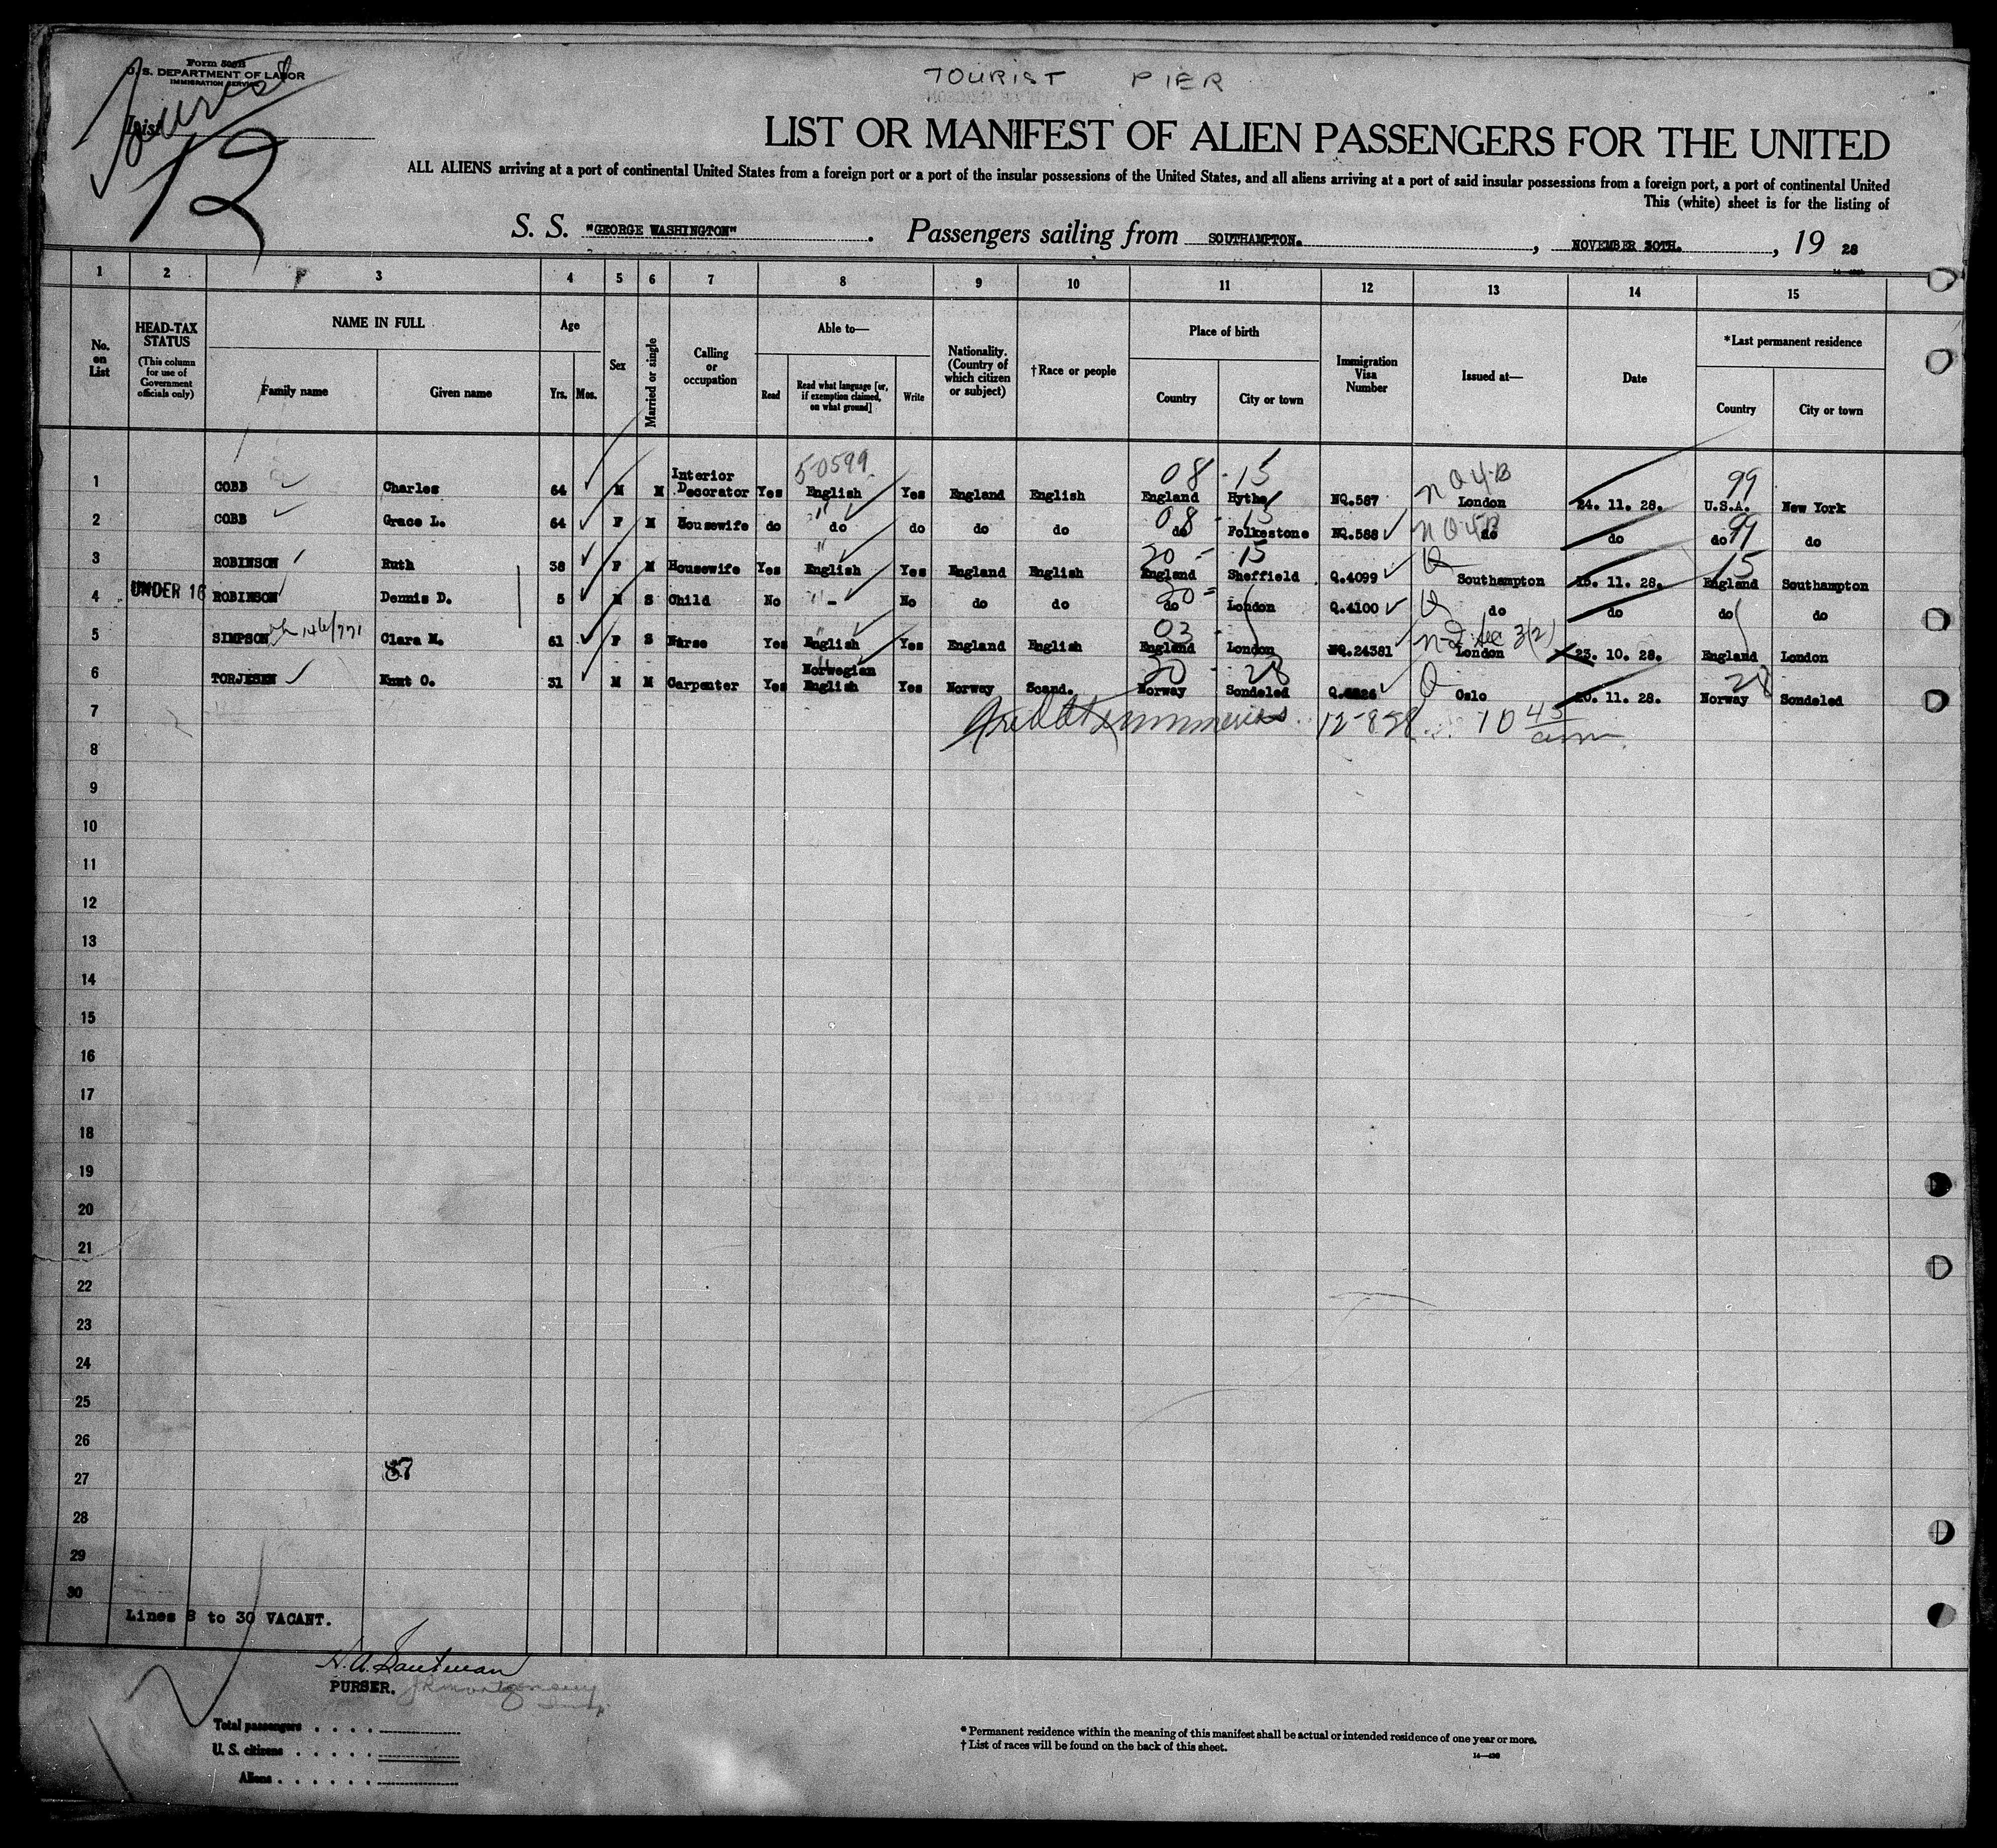 TOURIST PIER
Form 500B
U. S. DEPARTMENT OF LABOR
IMMIGRATION SERVICE
Tourist
List
12
LIST OR MANIFEST OF ALIEN PASSENGERS FOR THE UNITED
ALL ALIENS arriving at a port of continental United States from a foreign port or a port of the insular possessions of the United States, and all aliens arriving at a port of said insular possessions from a foreign port, a port of continental United
This (white) sheet is for the listing of
S. S. "GEORGE WASHINGTON" . Passengers sailing from SOUTHAMPTON. , NOVEMBER 30TH. , 19 28
1 2 3 4 5 6 7 8 9 10 11 12 13 14 15
No. on List
HEAD-TAX STATUS (This column for use of Government officials only)
NAME IN FULL
Family name Given name
Age
Yrs. Mos.
Sex
Married or single
Calling or occupation
Able to—
Read Read what language [or, if exemption claimed, on what ground] Write
Nationality. (Country of which citizen or subject)
†Race or people
Place of birth
Country City or town
Immigration Visa Number
Issued at—
Date
*Last permanent residence
Country City or town
50599 08 - 15 NO 4-B 99
1 COBB Charles 64 M M Interior Decorator Yes English Yes England English England Hythe NQ.587 London 24. 11. 28. U.S.A. New York
08 - 15 99
2 COBB Grace L. 64 F M Housewife do do do do do do Folkestone NQ.588 do do do do
20 - 15 Q 15
3 ROBINSON Ruth 38 F M Housewife Yes English Yes England English England Sheffield Q.4099 Southampton 15. 11. 28. England Southampton
20 - Q
4 UNDER 16 ROBINSON Dennis D. 5 M S Child No - No do do do London Q.4100 do do do do
03 - Sec 3(2)
5 SIMPSON 146/771 Clara M. 61 F S Nurse Yes English Yes England English England London NQ.24381 London 23. 10. 28. England London
20 - 28 Q 28
6 TORJESEN Knut O. 31 M M Carpenter Yes Norwegian English Yes Norway Scand. Norway Sondeled Oslo 20. 11. 28. Norway Sondeled
7 12-8-28 10 45 am
8
9
10
11
12
13
14
15
16
17
18
19
20
21
22
23
24
25
26
27
28
29
30
Lines 8 to 30 VACANT.
PURSER.
Total passengers
U. S. citizens
Aliens
* Permanent residence within the meaning of this manifest shall be actual or intended residence of one year or more.
† List of races will be found on the back of this sheet.